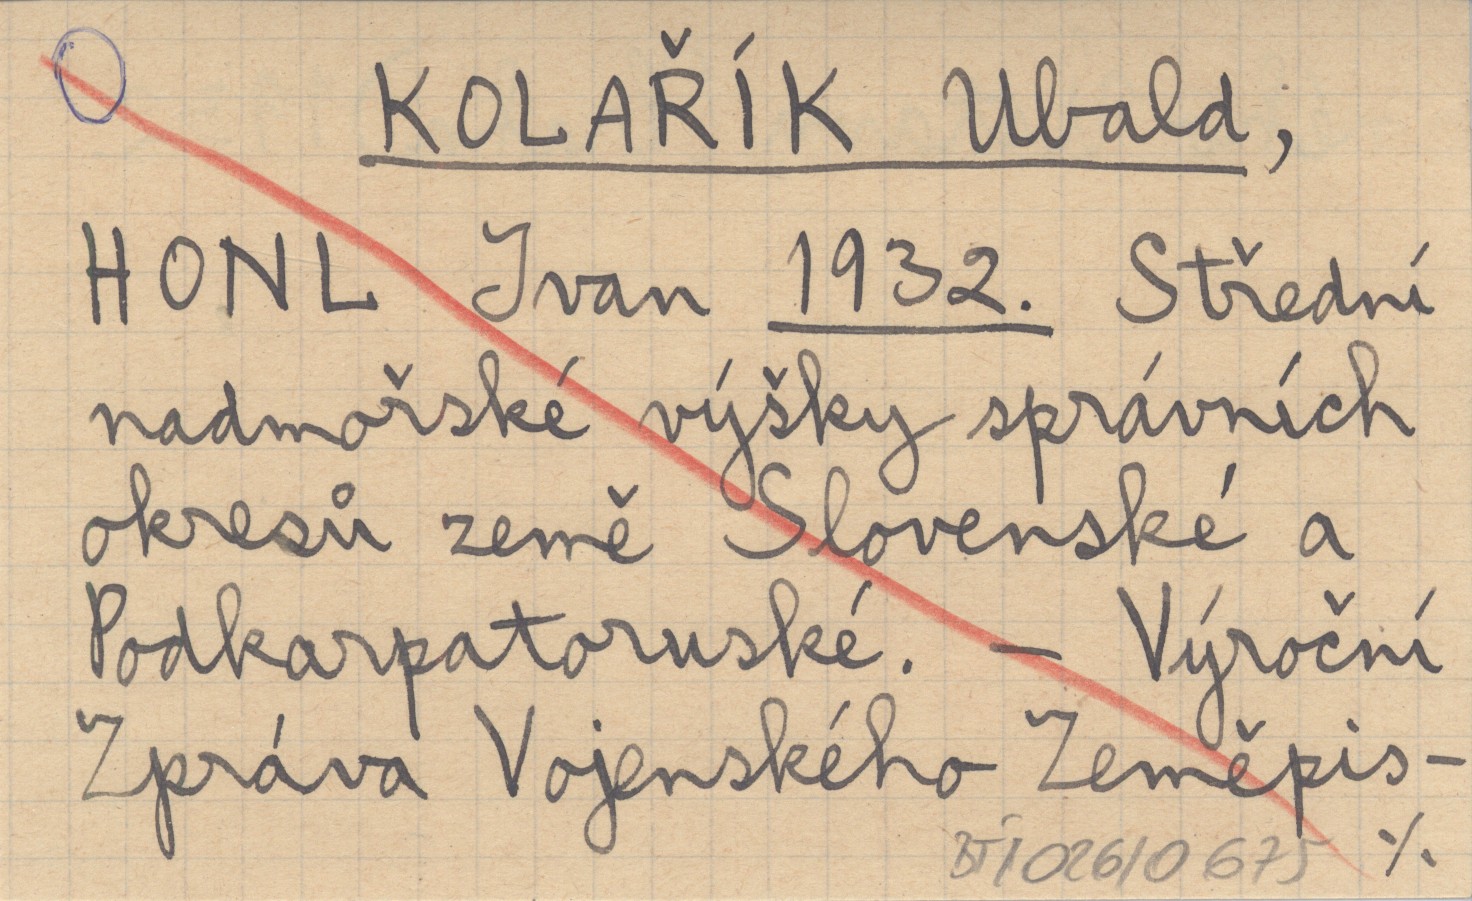 KOLAŘÍK Ubald,
HONL Ivan 1932. Střední
nadmořské výšky správních
okresů země Slovenské a
Podkarpatoruské. — Výroční
Zpráva Vojenského Zeměpis-
026/0 675 ·/.